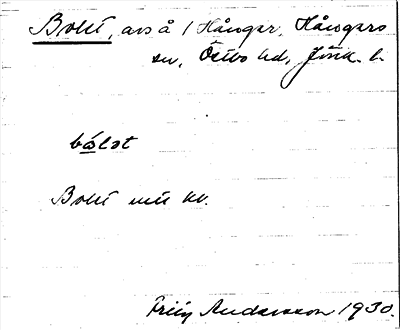 Bolit, avs å 1 Hånger, Hångers
sn, Östbo hd, Jönk. l.
bólot
Bolit
Andersson 1930.